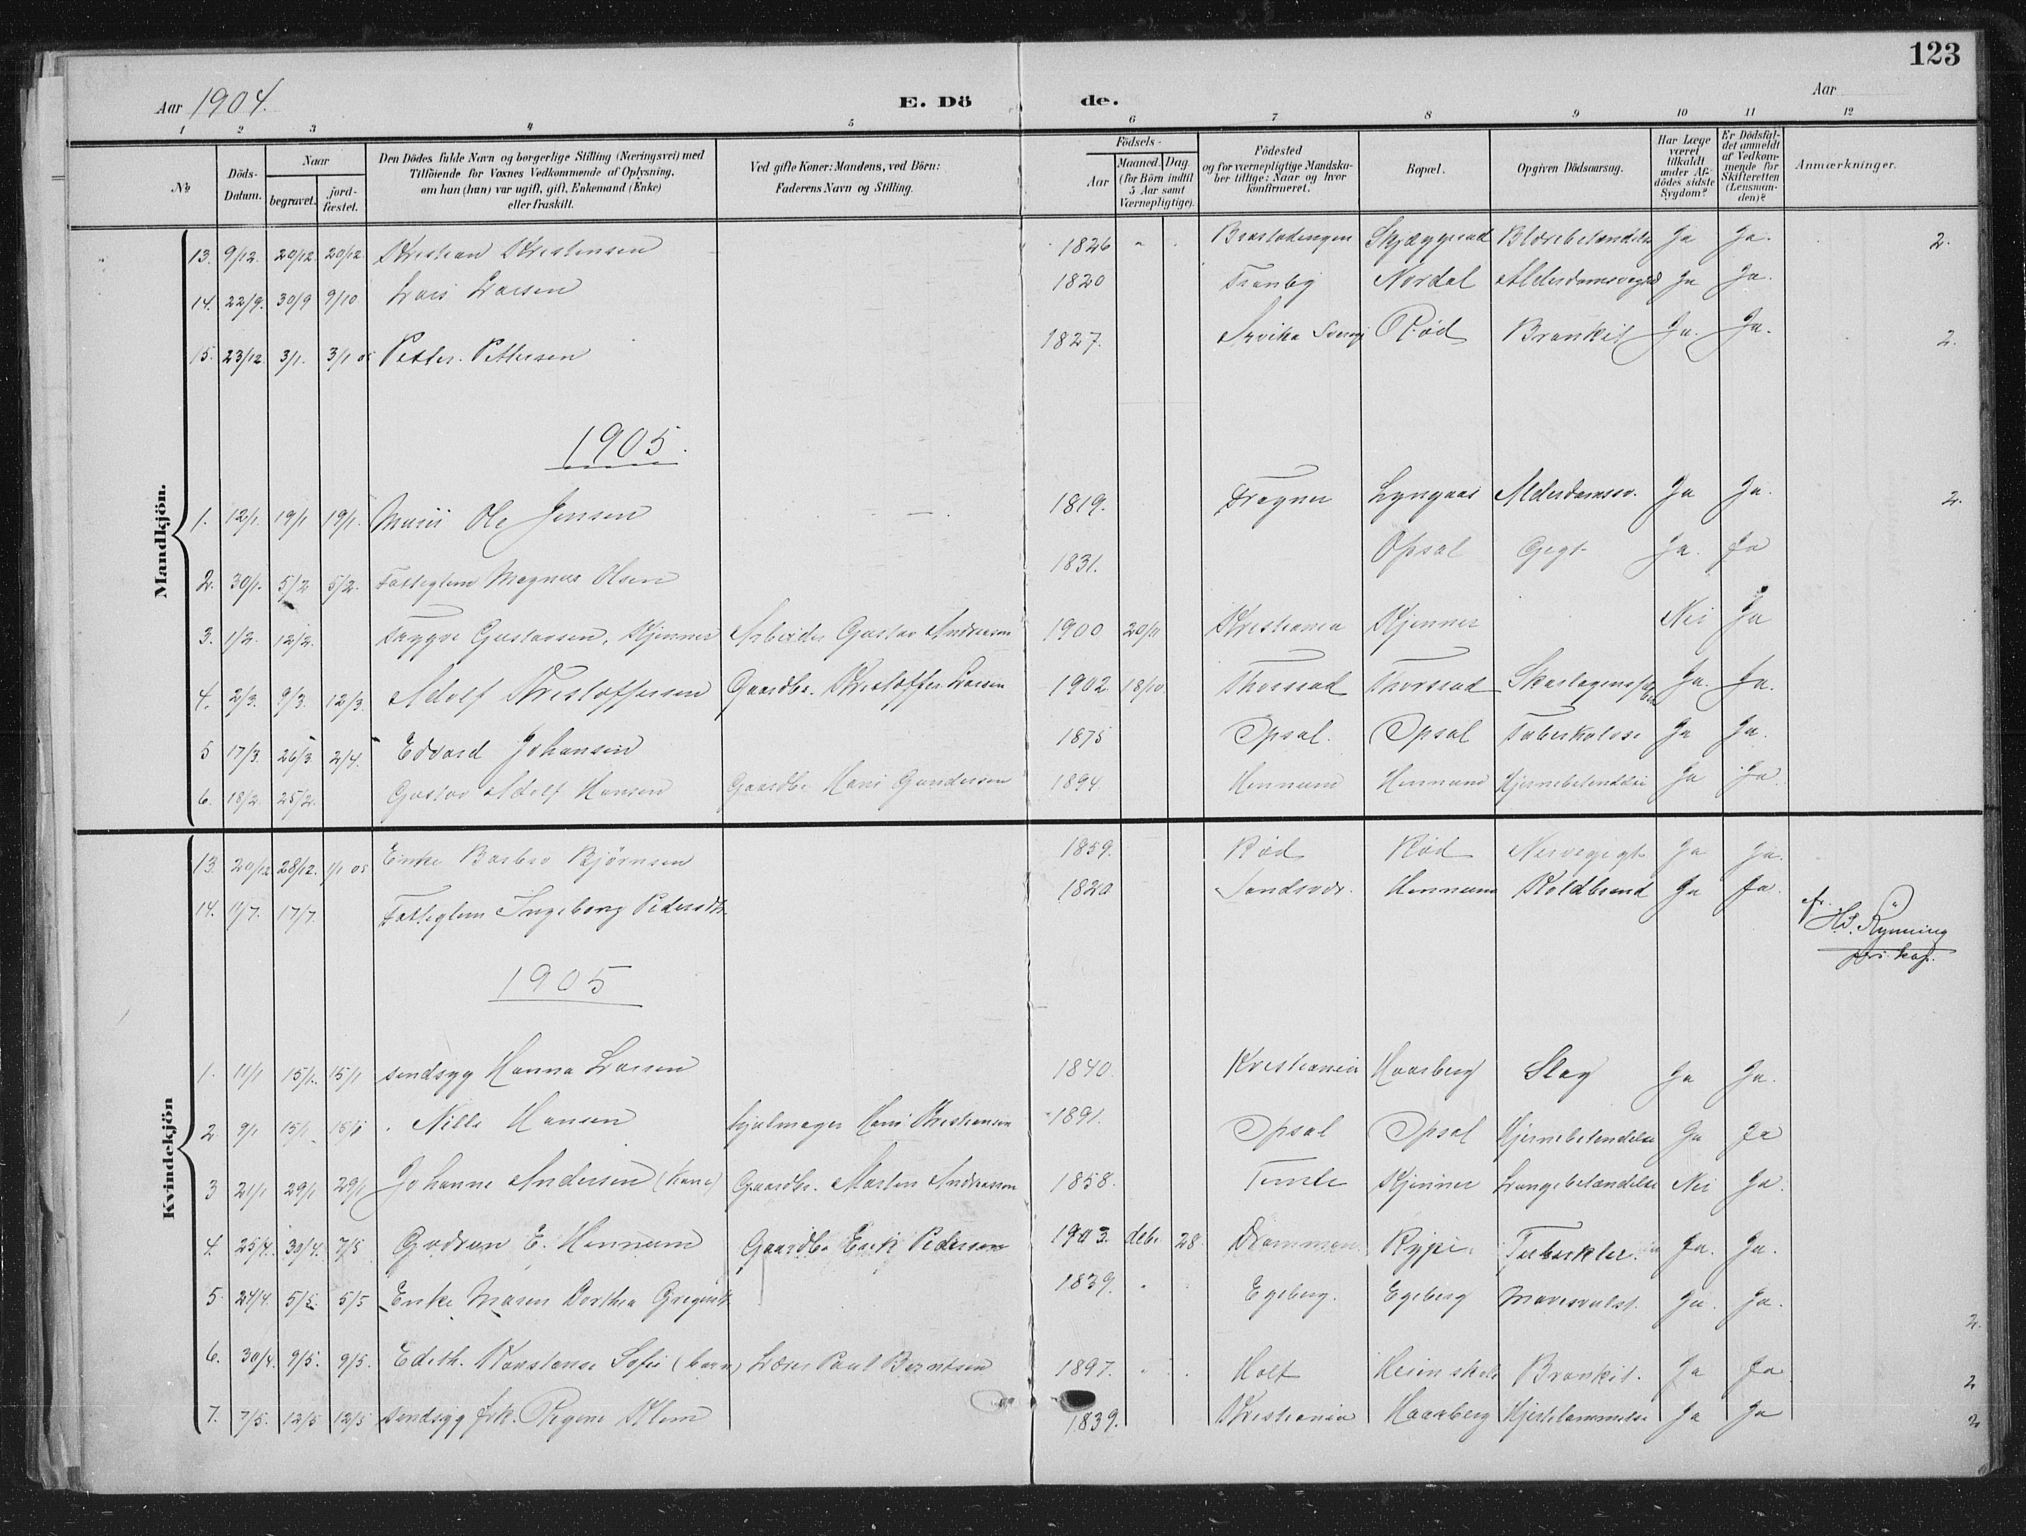 123
Aar 1904. E. Dö de. Aar
1 2 3 4 5 6 7 8 9 10 11 12
No Döds-Datum. Naar begravet. jord-fæstet. Den Dödes fulde Navn og borgerlige Stilling (Næringsvei) med Tilföiende for Voxnes Vedkommende af Oplysning, om han (hun) var ugift, gift, Enkemand (Enke) eller fraskilt. Ved gifte Koner: Mandens, ved Börn: Faderens Navn og Stilling. Födsels- Aar Maaned. Dag. (for Börn indtil 5 Aar samt Værnepligtige). Födested og for værnepligtige Mandska-ber tillige: Naar og hvor konfirmeret. Bopæl. Opgiven Dödsaarsag. Har Læge været tilkaldt under Af-dödes sidste Sygdom? Er Dödsfal-det anmeldt af Vedkom-mende for Skifteretten (Lensman-den)? Anmærkninger.
Mandkjön.
13. 9/12. 20/12. 20/12. Kristian Kristensen 1826 Skjæggerud Blærebetændelse Ja Ja. 2.
14. 22/9. 30/9 9/10 Lars Larsen 1820 Tranby Nordal Ja Ja.
15. 23/12. 3/1. 3/1 05 Petter Pettersen 1827. Rød Bronkit Ja. Ja. 2.
1905.
1. 12/1. 19/1 19/1. Ole Jensen 1819. Lyngaas Alderdomssv. Ja Ja. 2.
2. 30/1. 5/2 5/2. Fattiglem Magnus Olsen 1831. Opsal Gigt Ja. Ja
3. 1/2. 12/2. Trygve Gustavsen, Kjenner Arbeider Gustav Andresen 1900 20/11 Kristiania Kjenner Nei Ja
4. 2/3. 9/3. 12/3. Adolf Kristoffersen Gaardbr. Kristoffer Larsen 1902 18/10. Thorsrud Thorsrud Ja. Ja.
5 17/3. 26/3 2/4. Edvard Johansen 1875 Opsal. Opsal Tuberkulose Ja Ja.
6. 18/2. 25/2. Gustav Adolf Hansen Gaardbr. Hans Gundersen 1894. Hennum Hennum Hjernebetendelse Ja Ja.
Kvindekjön
13. 20/12 28/12. 1/1 05 Enke Barbro Bjørnsen 1859. Rød Rød Nervegigt Ja Ja.
14. 11/7. 17/7. Fattiglem Ingeborg Pedersdtr. 1820 Sandsvær. Hennum Koldbrand Ja Ja. H.S. Rynning
1905
1. 11/1 15/1. 15/1 sindsyg Hanna Larsen 1840. Kristiania Haarberg Slag Ja Ja.
2 9/1 15/1. 15/1 Nilla Hansen Hjulmager Hans Kristiansen 1891. Opsal Opsal Hjernebetendelse Ja Ja
3 21/1 29/1 29/1 Johanne Andersen (Kone) Gaardbr. Martin Andreassen 1858. Kjenner Lungebetændelse Nei Ja.
4. 25/4. 30/4. 7/5 Gudrun E. Hennum Gaardbr. Erik Pedersen 1903. 28. Drammen Rypi Tuberkler. Ja. Ja.
5. 24/4. 5/5. 5/5 Enke Maren Dorthea 1839. Egeberg. Egeberg Ja. Ja. 2.
6. 30/4. 9/5. 9/5. Edith Konstanse Sofie (barn) Lærer Paul Berntsen 1897. Holt Bronkit. Ja Ja 2
7. 7/5. 12/5 12/5 sindsyg frk. Regine Klem 1839. Kristiania Haarberg Hjertelammelse Ja Ja 2